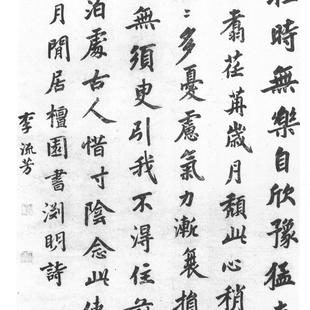 時無樂自欣豫猛
翥荏苒歲月頹此心稍
ミ多憂慮氣力漸衰損
無須臾引我不得住前
泊處古人惜寸陰念此使
月閒居檀園書淵明詩
李流芳